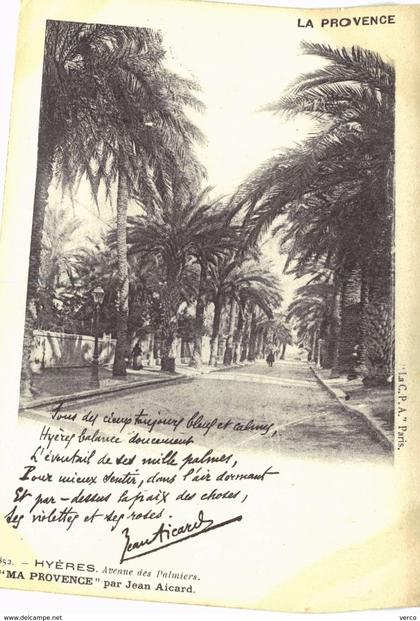 LA PROVENCE
"La C. P. A." Paris.
Sous des cieux toujours bleus et calmes,
Hyères balance doucement
L'éventail de ses mille palmes,
Pour mieux sentir, dans l'air dormant
Et par-dessus la paix des choses,
Ses violettes et ses roses.
Jean Aicard
852. - HYÈRES. Avenue des Palmiers.
"MA PROVENCE" par Jean Aicard.
verco